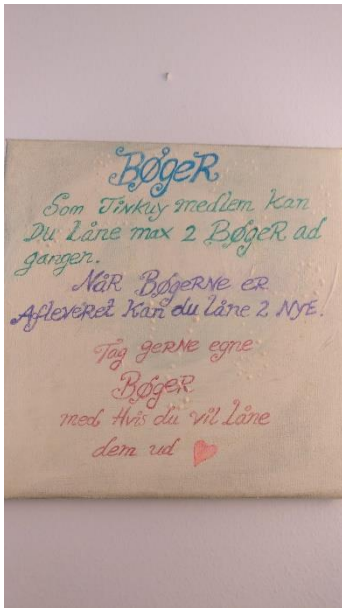 BøgeR
Som Tinkuy medlem kan
Du låne max 2 BøgeR ad
gangen.
NåR BøgeRNe eR
AfleveRet kan du låne 2 NYE.
Tag geRNe egne
BøgeR
med Hvis du vil låne
dem ud